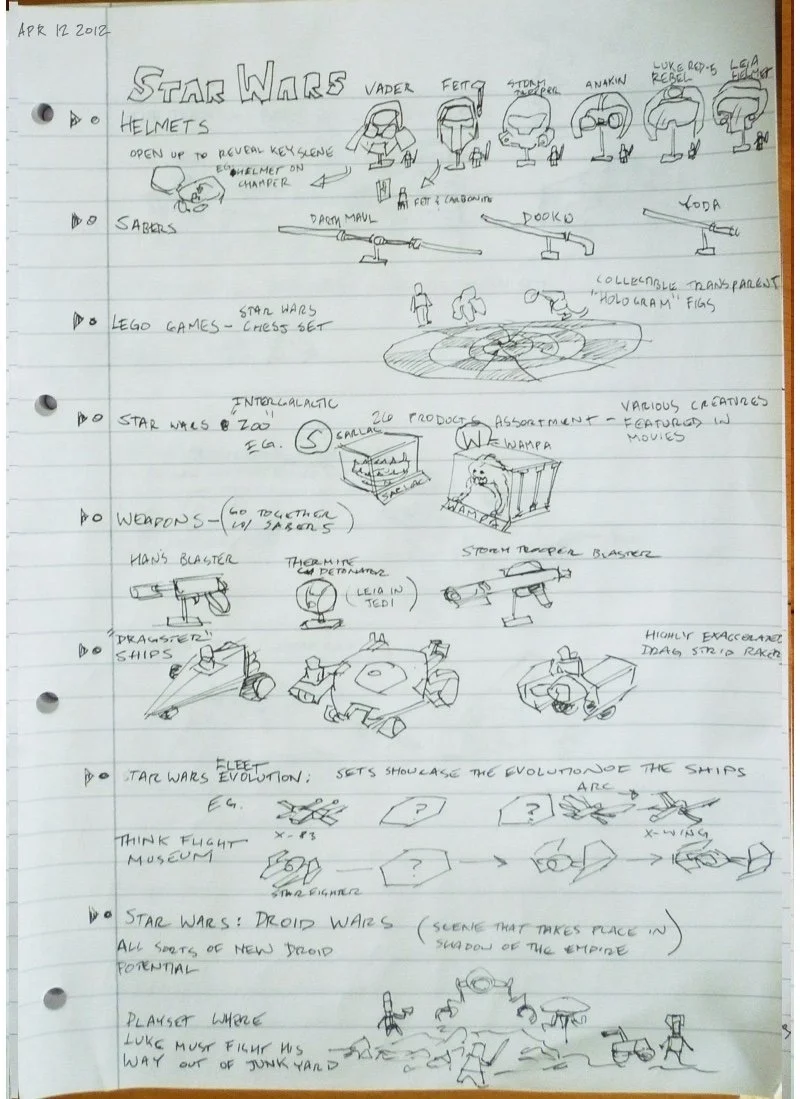 APR 12 2012
STAR WARS
VADER
FETT
STORM
TROOPER
ANAKIN
LUKE RED-5
REBEL
LEIA
HELMET
HELMETS
OPEN UP TO REVEAL KEY SCENE
EG. HELMET ON
CHAMBER
FETT & CARBONITE
SABERS
DARTH MAUL
DOOKU
YODA
COLLECTIBLE TRANSPARENT
"HOLOGRAM" FIGS
LEGO GAMES - STAR WARS
CHESS SET
INTERGALACTIC
STAR WARS "ZOO"
26 PRODUCTS ASSORTMENT - VARIOUS CREATURES
FEATURED IN
MOVIES
EG.
S
SARLAC
SARLAC
W
WAMPA
WAMPA
WEAPONS - (GO TOGETHER
W/ SABERS)
HAN'S BLASTER
THERMITE
DETONATOR
(LEIA IN
JEDI)
STORM TROOPER BLASTER
"DRAGSTER"
SHIPS
HIGHLY EXAGGERATED
DRAG STRIP RACER
FLEET
STAR WARS EVOLUTION: SETS SHOWCASE THE EVOLUTION OF THE SHIPS
EG.
X-83
?
?
ARC
X-WING
THINK FLIGHT
MUSEUM
STARFIGHTER
?
STAR WARS: DROID WARS
(SCENE THAT TAKES PLACE IN
SHADOW OF THE EMPIRE)
ALL SORTS OF NEW DROID
POTENTIAL
PLAYSET WHERE
LUKE MUST FIGHT HIS
WAY OUT OF JUNKYARD